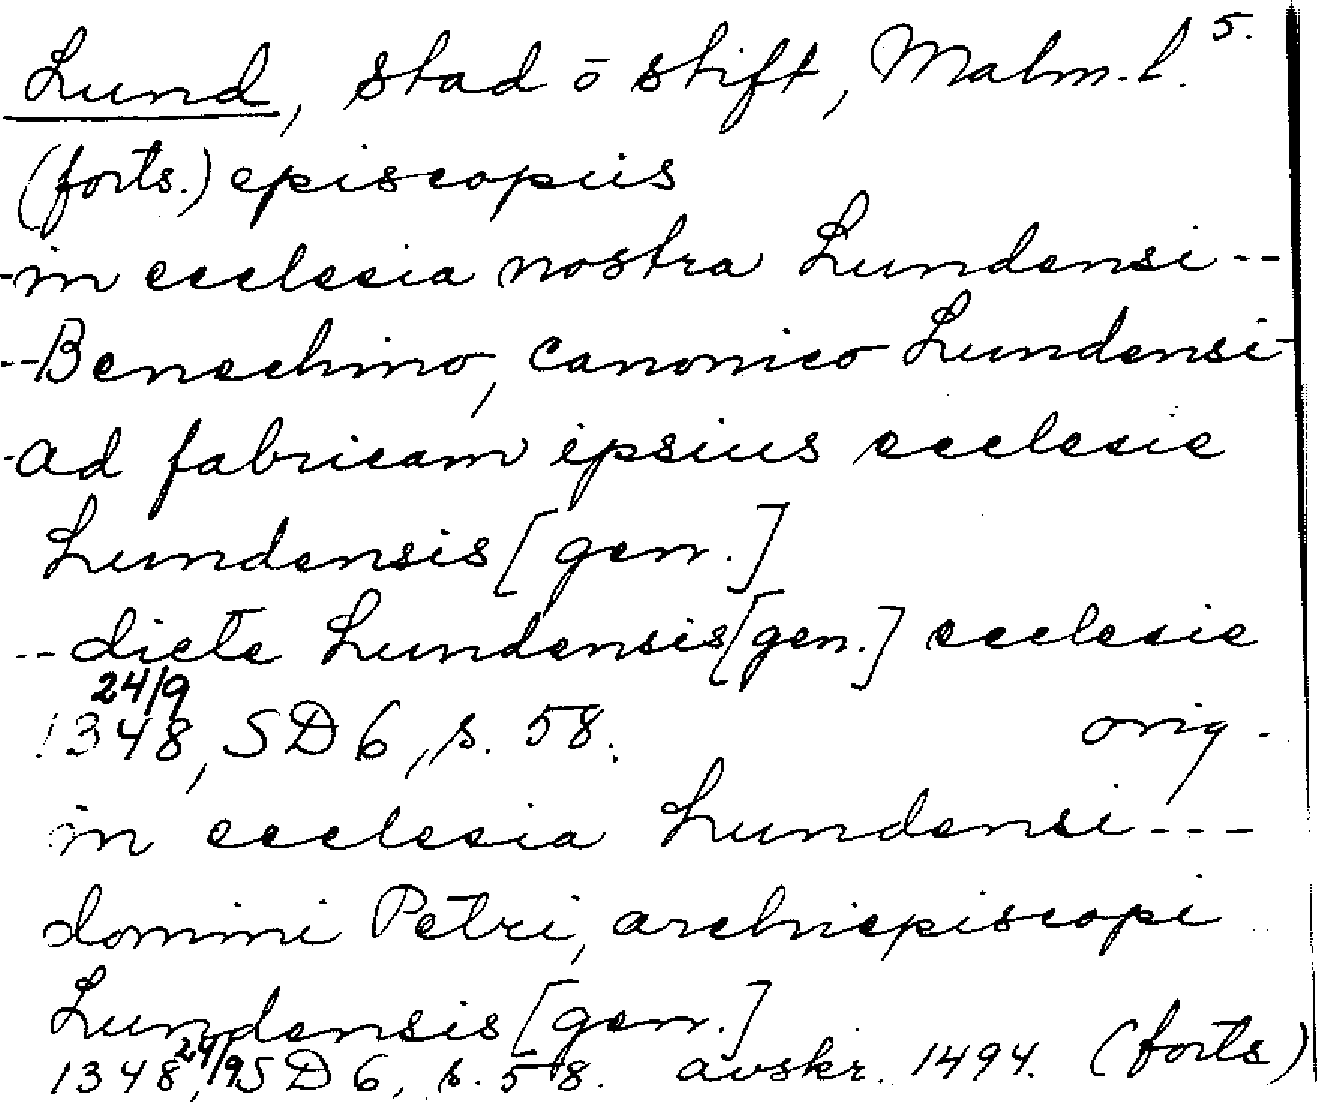 Lund, stad o stift, Malm. l. 5.
(forts.) episcopus
-in ecclesia nostra Lundensi--
--Benechino, canonico Lundensi-
-ad fabricam ipsius ecclesie
Lundensis [gen.]
--dicte Lundensis [gen.] ecclesie
24/9
1348, SD 6, s. 58. orig.
in ecclesia Lundensi---
domini Petri, archiepiscopi
Lundensis [gen.]
1348 24/9, SD 6, s. 58. avskr. 1494. (forts)